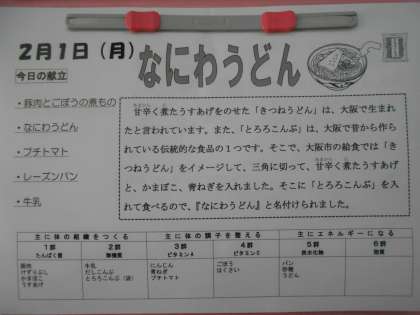 2月1日（月）
なにわうどん
今日の献立
・豚肉とごぼうの煮もの
・なにわうどん
・プチトマト
・レーズンパン
・牛乳
甘辛く煮たうすあげをのせた「きつねうどん」は、大阪で生まれ
たと言われています。また、「とろろこんぶ」は、大阪で昔から作ら
れている伝統的な食品の１つです。そこで、大阪市の給食では「き
つねうどん」をイメージして、三角に切って、甘辛く煮たうすあげ
と、かまぼこ、青ねぎを入れました。そこに「とろろこんぶ」を入
れて食べるので、『なにわうどん』と名付けられました。
主に体の組織をつくる 主に体の調子を整える 主にエネルギーになる
1群 2群 3群 4群 5群 6群
たんぱく質 無機質 ビタミンA ビタミンC 炭水化物 脂質
豚肉 牛乳 にんじん ごぼう パン
けずりぶし だしこんぶ 青ねぎ はくさい 砂糖
かまぼこ とろろこんぶ（袋） プチトマト うどん
うすあげ